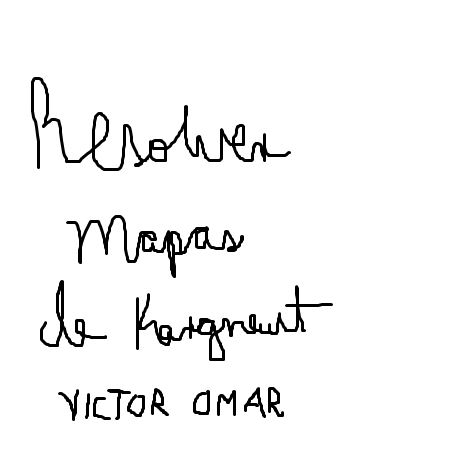 Resolver
Mapas
de Kargneut
VICTOR OMAR